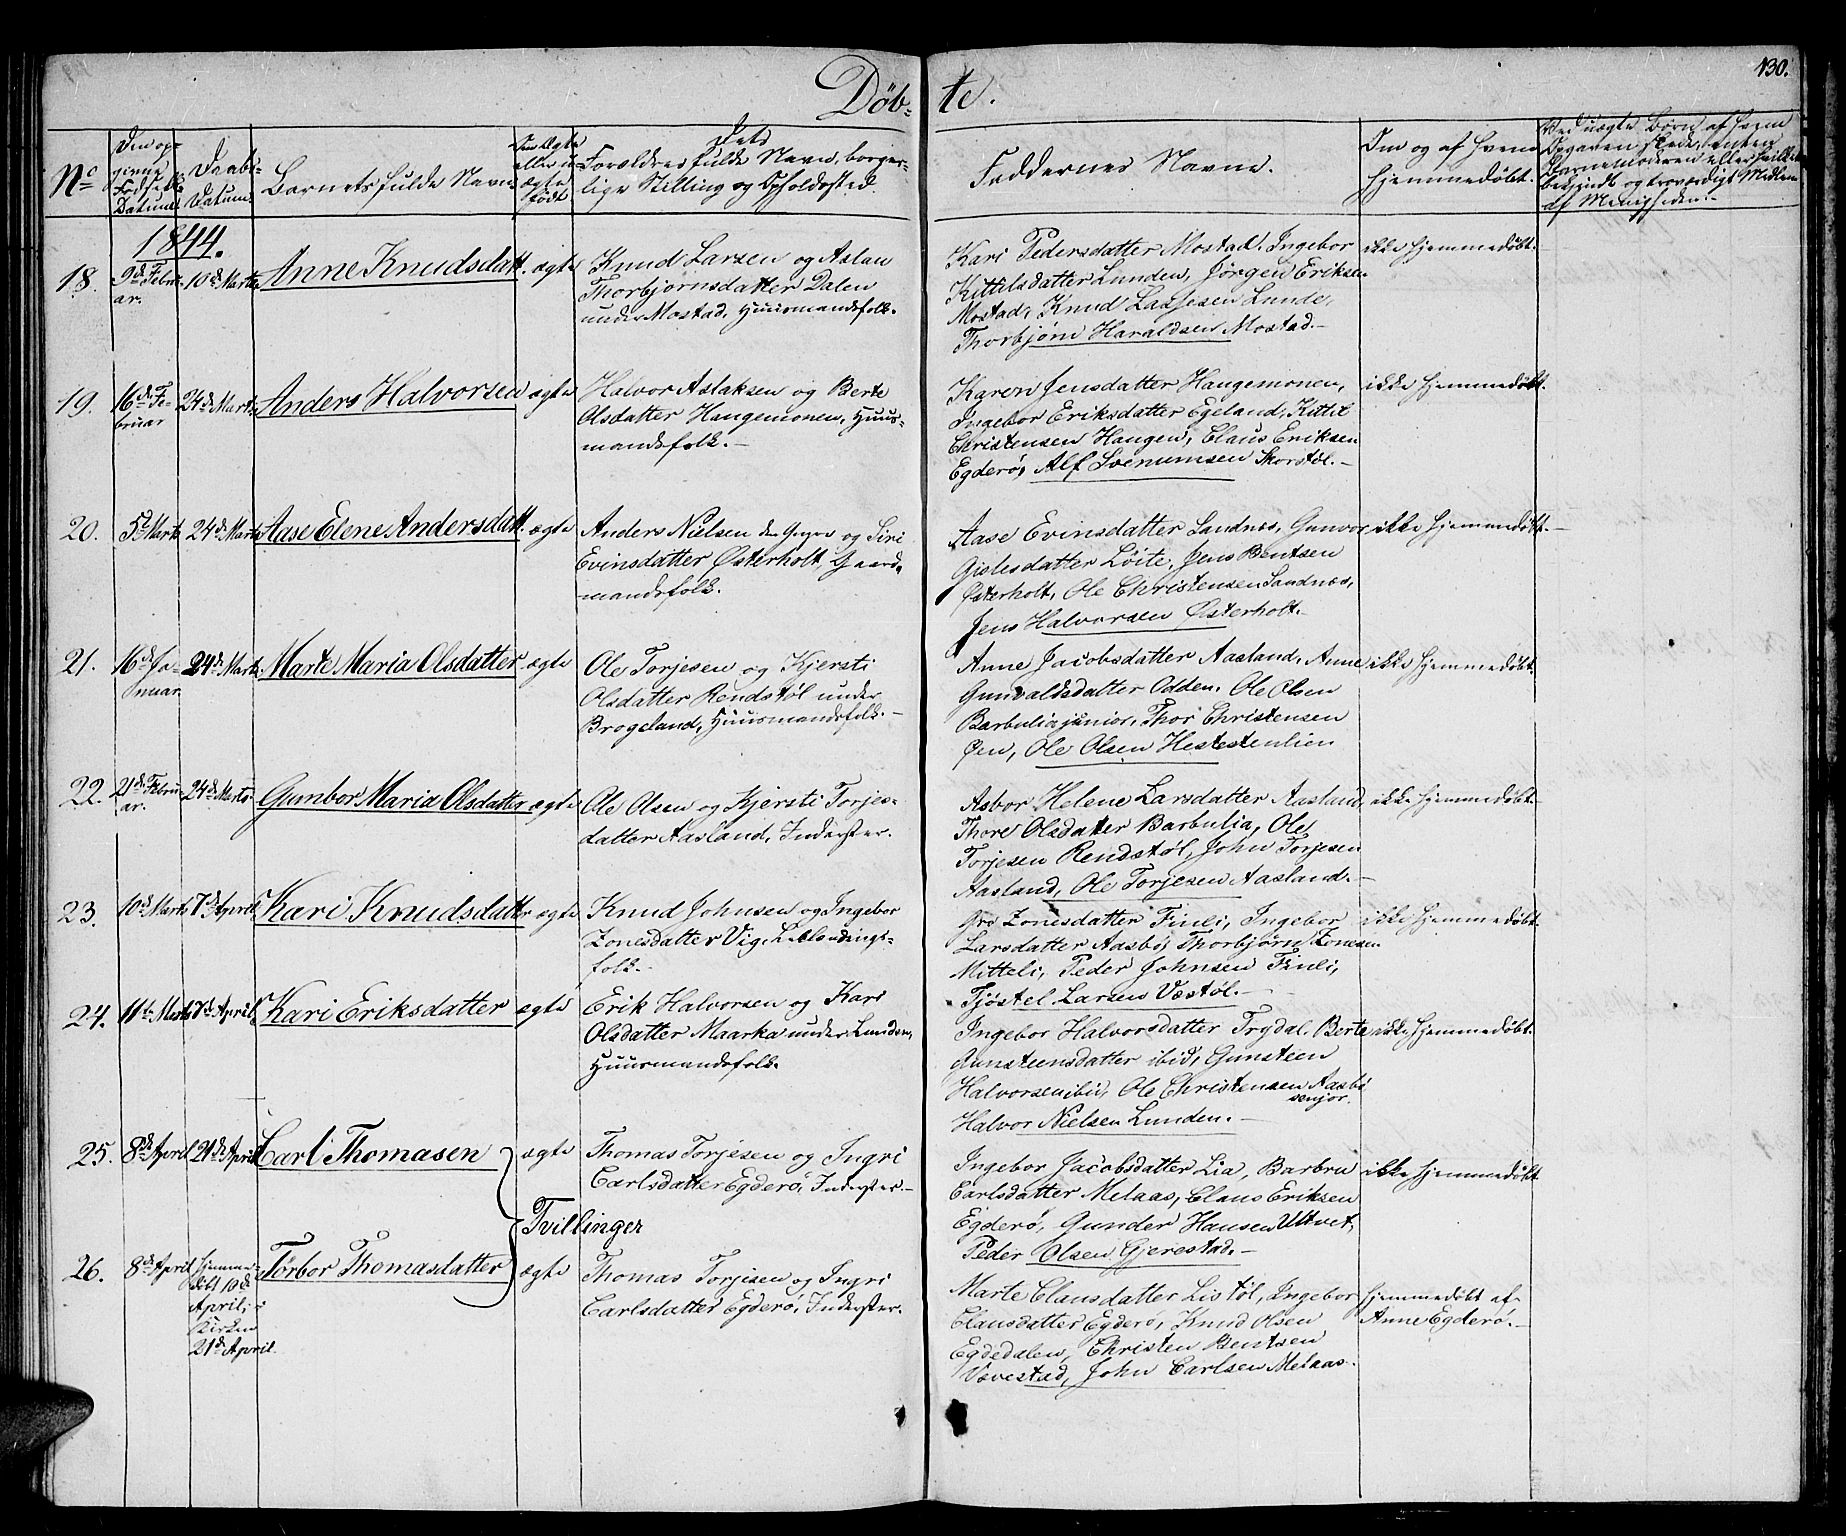 Døb-
te.
130.
No
Den op-
givne
Fødsels
Datum.
Daabs-
Datum.
Barnets fulde Navn
Om Ægte
eller u-
ægte
født
Dets
Forældres fulde Navn, borger-
lige Stilling og Opholdssted.
Faddernes Navne.
Om og af hvem
hjemmedøbt.
Ved uægte Børn af hvem
Opgaven skede, enten
Barnemoderen eller hvilket
bekjendt og troværdigt Medlem
af Menigheden.
1844.
18.
9de Febru-
ar.
10de Marts
Anne Knudsdatt.
ægte
Knud Larsen og Aslau
Thorbjørnsdatter Dalen
under Mostad, Huusmandsfolk.
Kari Pedersdatter Mostad, Ingebor
Kittilsdatter Lunden, Jörgen Eriksen
Mostad, Knud Lassesen Lunde,
Thorbjørn Haraldsen Mostad.-
ikke hjemmedøbt.
19.
16de Fe-
bruar
24de Marts
Anders Halvorsen
ægte
Halvor Aslaksen og Berte
Olsdatter Haugemonen, Huus-
mandsfolk.-
Karen Jensdatter Haugemonen,
Ingebor Eriksdatter Egeland, Kittil
Christensen Haugen, Claus Eriksen
Egderø, Alf Svenumsen Skorstøl.-
ikke hjemmedøbt.
20.
5te Marts
24de Marts
Aase Elene Andersdatt.
ægte
Anders Nielsen den Yngre og Siri
Evinsdatter Østerholt, Gaard-
mandsfolk.
Aase Evinsdatter Sandnes, Gunvor
Gjelesdatter Löite, Jens Bentsen
Østerholt, Ole Christensen Sandnes,
Jens Halvorsen Østerholt.-
ikke hjemmedøbt.-
21.
16de Ja-
nuar
24de Marts
Marte Maria Olsdatter
ægte
Ole Torjesen og Kjersti
Olsdatter Rendstøl under
Brogeland, Huusmandsfolk.-
Anne Jacobsdatter Aasland, Anne
Gunvaldsdatter Odden, Ole Olsen
Barbulia junior, Thor Christensen
Øen, Ole Olsen Hestestenlien
ikke hjemmedøbt.
22.
21de Febru-
ar.
24de Marts
Gunbor Maria Olsdatter
ægte
Ole Olsen og Kjersti Torjes-
datter Aasland, Inderster.
Asbor Helene Larsdatter Aasland,
Thore Olsdatter Barbulia, Ole
Torjesen Rendstøl, John Torjesen
Aasland, Ole Torjesen Aasland.-
ikke hjemmedøbt-
23.
10de Marts
7de April
Kari Knudsdatter
ægte
Knud Johnsen og Ingebor
Zonesdatter Vig,
folk.-
Gro Zonesdatter Finli, Ingebor
Larsdatter Aasbø, Thorbjørn Zonesen
Mitteli, Peder Johnsen Finli,
Tjøstel Larsen Væstøl.-
ikke hjemmedøbt.
24.
11te Marts
7de April
Kari Eriksdatter
ægte
Erik Halvorsen og Kari
Olsdatter Maarka under Lunden,
Huusmandsfolk.
Ingebor Halvorsdatter Trydal, Berte
Gunsteensdatter ibid, Gunsteen
Halvorsen ibid, Ole Christensen Aasbø
senior.
Halvor Nielsen Lunden.-
ikke hjemmedøbt.
25.
8de April
21de April
Carl Thomasen
ægte
Thomas Torjesen og Ingri
Carlsdatter Egderø, Inderster.-
Ingebor Jacobsdatter Lia, Barbru
Carlsdatter Melaas, Claus Eriksen
Egderø, Gunder Hansen Ultvet,
Peder Olsen Gjerestad.-
ikke hjemmedøbt
Tvillinger
26.
8de April
hjemme-
døbt 10de
April, i
Kirken
21de April
Torbor Thomasdatter
ægte
Thomas Torjesen og Ingri
Carlsdatter Egderø, Inderster.
Marte Clausdatter Listøl, Ingebor
Clausdatter Egderø, Knud Olsen
Egdedalen, Christen Bentsen
Vævestad, John Carlsen Melaas.
hjemmedøbt af
Anne Egderø.-